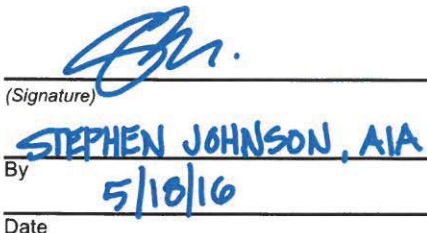 (Signature)
STEPHEN JOHNSON, AIA
By
5/18/16
Date